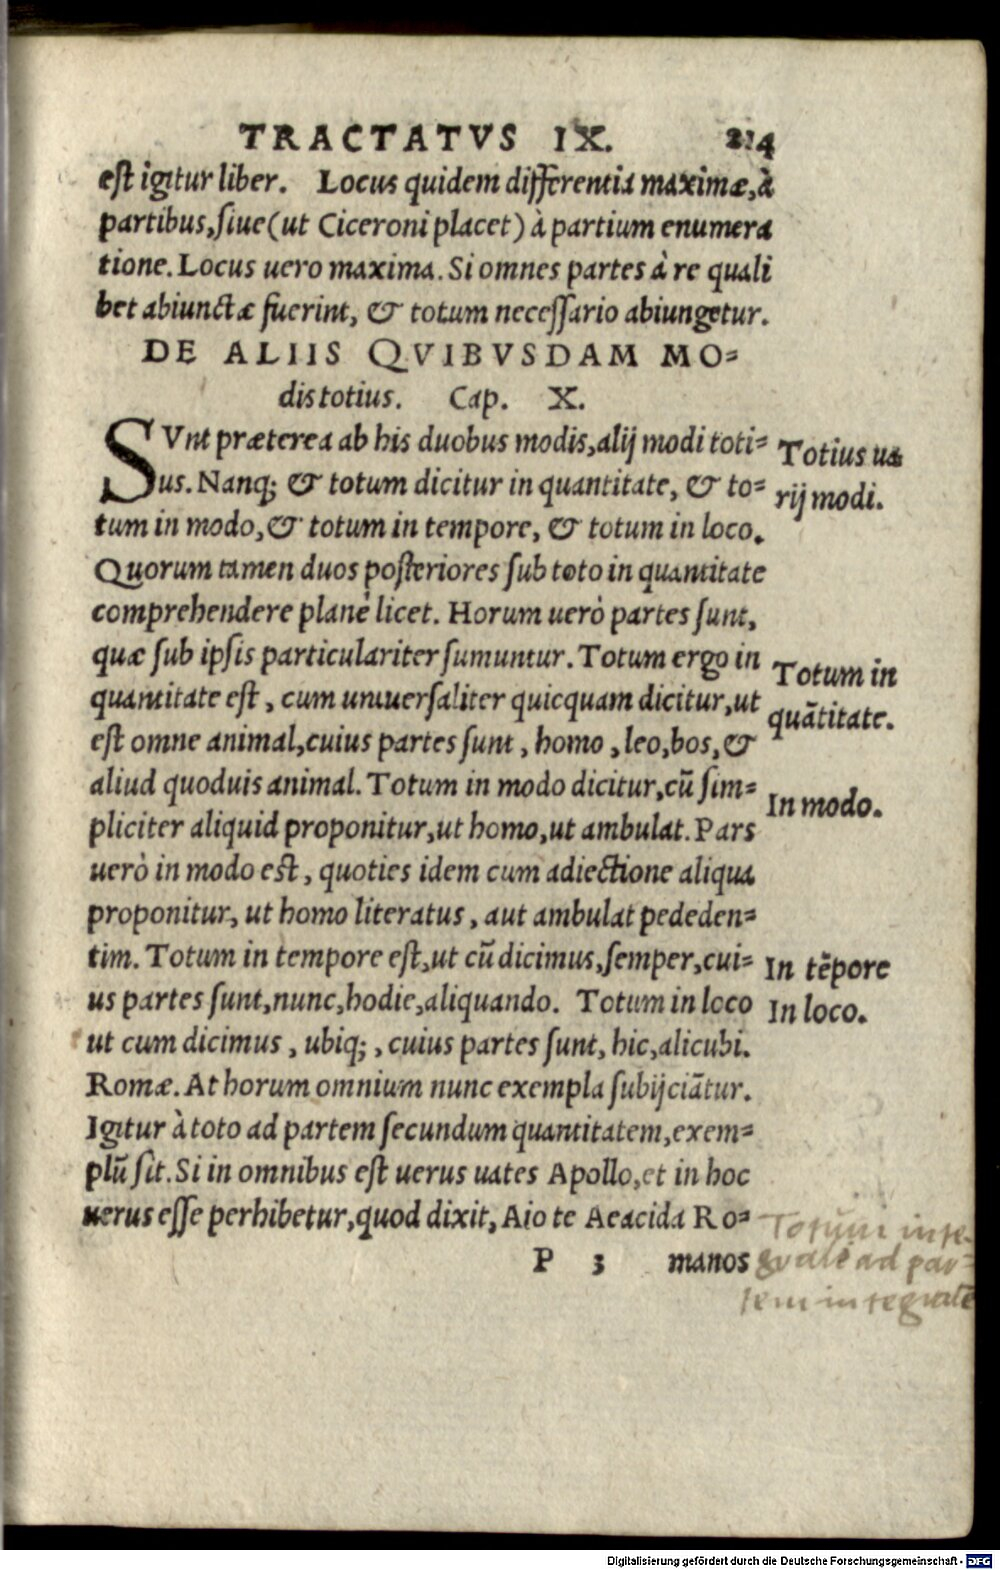 TRACTATVS IX. 214
est igitur liber. Locus quidem differentia maximæ, à
partibus, siue (ut Ciceroni placet) à partium enumera
tione. Locus uero maxima. Si omnes partes à re quali
bet abiunctæ fuerint, & totum necessario abiungetur.
DE ALIIS QVIBVSDAM MO=
dis totius. Cap. X.
SVnt præterea ab his duobus modis, alij modi toti=
us. Nanq; & totum dicitur in quantitate, & to=
tum in modo, & totum in tempore, & totum in loco.
Quorum tamen duos posteriores sub toto in quantitate
comprehendere planè licet. Horum uerò partes sunt,
quæ sub ipsis particulariter sumuntur. Totum ergo in
quantitate est, cum uniuersaliter quicquam dicitur, ut
est omne animal, cuius partes sunt, homo, leo, bos, &
aliud quoduis animal. Totum in modo dicitur, cū sim=
pliciter aliquid proponitur, ut homo, ut ambulat. Pars
uerò in modo est, quoties idem cum adiectione aliqua
proponitur, ut homo literatus, aut ambulat pededen=
tim. Totum in tempore est, ut cū dicimus, semper, cui=
us partes sunt, nunc, hodie, aliquando. Totum in loco
ut cum dicimus, ubiq;, cuius partes sunt, hic, alicubi.
Romæ. At horum omnium nunc exempla subijciātur.
Igitur à toto ad partem secundum quantitatem, exem=
plū sit. Si in omnibus est uerus uates Apollo, et in hoc
uerus esse perhibetur, quod dixit, Aio te Aeacida Ro=
P 3 manos
Totius ua
rij modi.
Totum in
quātitate.
In modo.
In tēpore
In loco.
Totum inte-
grale ad par=
tem integralē
Digitalisierung gefördert durch die Deutsche Forschungsgemeinschaft - DFG